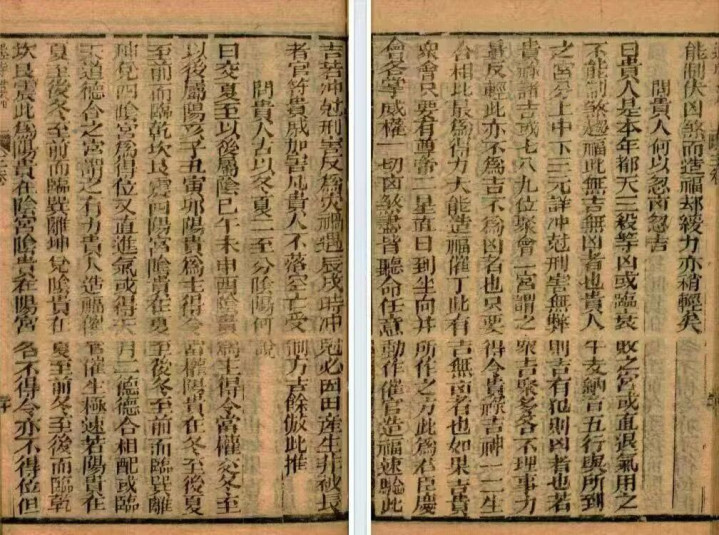 能制伏凶煞而造福却緩力亦稍輕矣
問貴人何以忽南忽吉
曰貴人是本年都天三殺等凶或臨衰敗之宮或直退氣用之
不能制煞趨福此無吉無凶者也貴人年支納音五行與所到
之宮分上中下三元詳冲尅刑害無弊則吉有犯則凶者也若
貴祿諸吉或七八九位聚會一宮謂之衆吉聚多各不理事力
量反輕此亦不為吉不為凶者也只要得令貴祿吉神一二生
合相比最為得力大能造福催丁此有吉無凶者也如果吉貴
衆會只要有尊帝二星直日到坐向并所作之方此為君臣慶
會各掌威權一切凶煞皆聽命任意動作催官造福速驗此
吉若冲尅刑害反為灾禍遇辰戌時冲尅必因田產生非破長
者官符貴歲加吉凡貴人不落空亡受制方吉餘倣此推
問貴人古以冬夏二至分陰陽何說
曰交夏至以後屬陰巳午未申酉陰貴為主得令當權交冬至
以後屬陽亥子丑寅卯陽貴為主得令當權陽貴在冬至後夏
至前而臨乾坎艮震四陽宮陰貴在夏至後冬至前而臨巽離
坤兌四陰宮為得位又直進氣或得天月二德德合相配或臨
天道德合之宮謂之有力貴人造福催官催生極速若陽貴在
夏至後冬至前而臨巽離坤兌陰貴在夏至前冬至後而臨乾
坎艮震此為陽貴在陰宮陰貴在陽宮各不得令亦不得位但